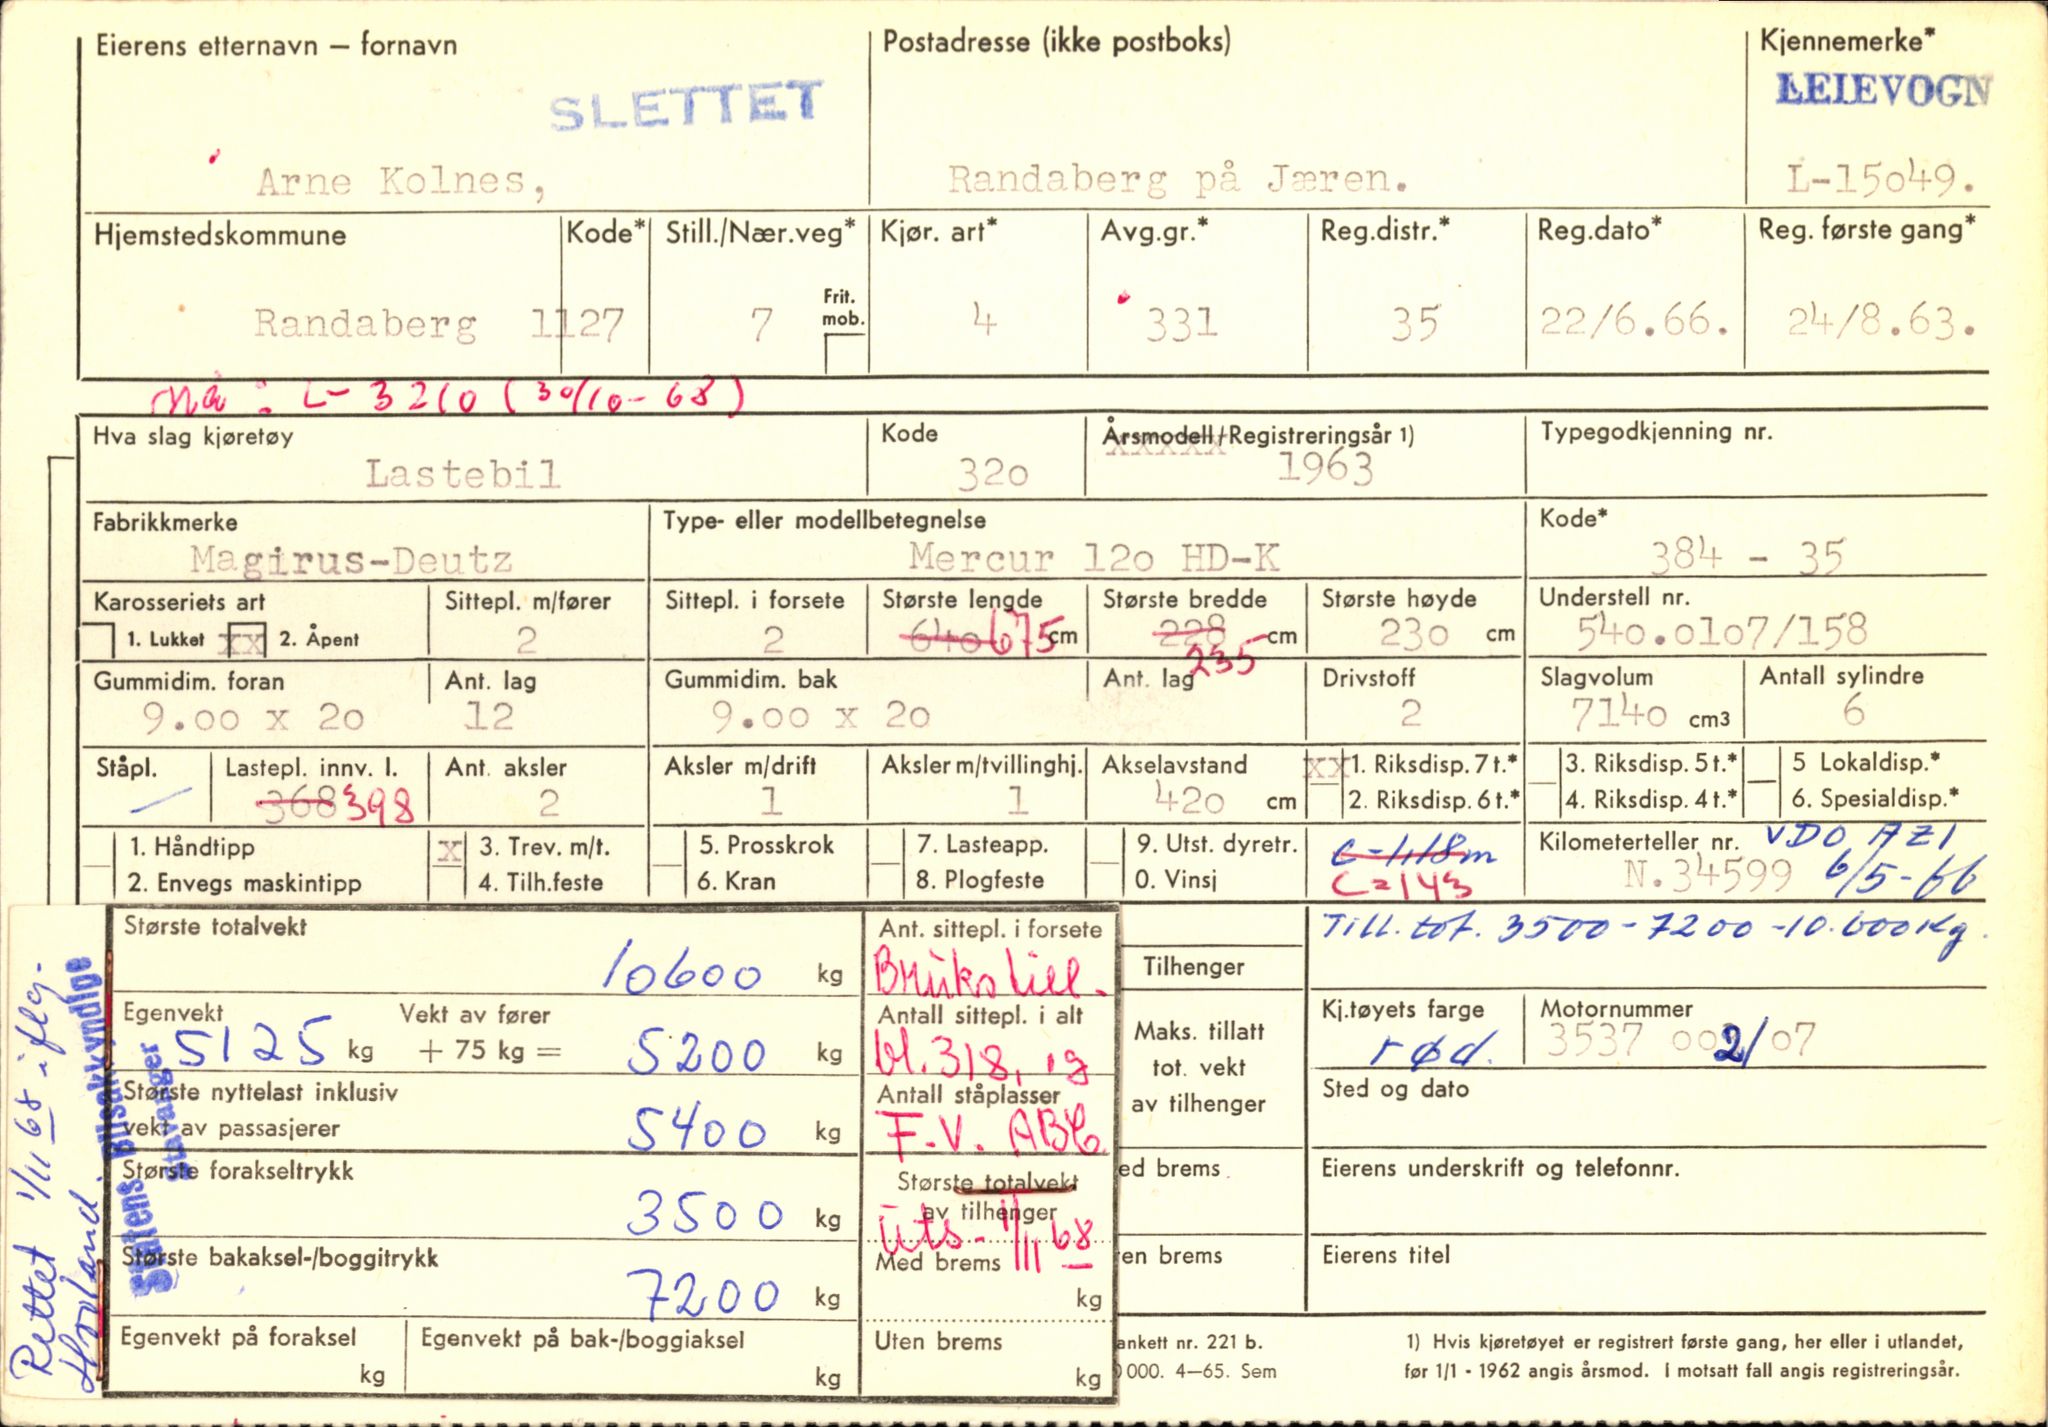 Eierens etternavn – fornavn
Postadresse (ikke postboks)
Kjennemerke*
SLETTET
LEIEVOGN
Arne Kolnes,
Randaberg på Jæren.
L-15o49.
Hjemstedskommune
Kode*
Still./Nær.veg*
Kjør. art*
Avg.gr.*
Reg.distr.*
Reg.dato*
Reg. første gang*
Frit. mob.
Randaberg 1127
7
4
331
35
22/6.66.
24/8.63.
Nå: L-3210 (30/10-68)
Hva slag kjøretøy
Kode
Årsmodell/Registreringsår 1)
Typegodkjenning nr.
Lastebil
32o
xxxxx
1963
Fabrikkmerke
Type- eller modellbetegnelse
Kode*
Magirus-Deutz
Mercur 12o HD-K
384 - 35
Karosseriets art
Sittepl. m/fører
Sittepl. i forsete
Største lengde
Største bredde
Største høyde
Understell nr.
1. Lukket xx 2. Åpent
2
2
640 675 cm
228 cm
235
23o cm
540.o1o7/158
Gummidim. foran
Ant. lag
Gummidim. bak
Ant. lag
Drivstoff
Slagvolum
Antall sylindre
9.oo x 2o
12
9.oo x 2o
2
714o cm3
6
Ståpl.
Lastepl. innv. l.
Ant. aksler
Aksler m/drift
Aksler m/tvillinghj.
Akselavstand
xx 1. Riksdisp. 7 t.*
3. Riksdisp. 5 t.*
5 Lokaldisp.*
368 398
2
1
1
42o cm
2. Riksdisp. 6 t.*
4. Riksdisp. 4 t.*
6. Spesialdisp.*
1. Håndtipp
x 3. Trev. m/t.
5. Prosskrok
7. Lasteapp.
9. Utst. dyretr.
C=1,18m
Kilometerteller nr.
VDO AZI
2. Envegs maskintipp
4. Tilh.feste
6. Kran
8. Plogfeste
0. Vinsj
C=143
N.34599
6/5-66
Største totalvekt
10600 kg
Ant. sittepl. i forsete
Brukstill.
Till. tot. 3500-7200-10.600kg.
Tilhenger
Egenvekt
Vekt av fører
5125 kg + 75 kg = 5200 kg
Antall sittepl. i alt
bl. 318, ig
Maks. tillatt
tot. vekt
av tilhenger
Kj.tøyets farge
rød.
Motornummer
3537 oo2/o7
Største nyttelast inklusiv
vekt av passasjerer
5400 kg
Antall ståplasser
F.V. ABC
Sted og dato
Største forakseltrykk
3500 kg
Største totalvekt
av tilhenger
Uts. 1/11 68
ed brems
Eierens underskrift og telefonnr.
Største bakaksel-/boggitrykk
7200 kg
Med brems
kg
en brems
Eierens titel
Egenvekt på foraksel
kg
Egenvekt på bak-/boggiaksel
kg
Uten brems
kg
ankett nr. 221 b.
000. 4–65. Sem
1) Hvis kjøretøyet er registrert første gang, her eller i utlandet,
før 1/1 - 1962 angis årsmod. I motsatt fall angis registreringsår.
Rettet 1/11 68 iflg.
Hovland.
Statens Bilsakkyndige
Stavanger